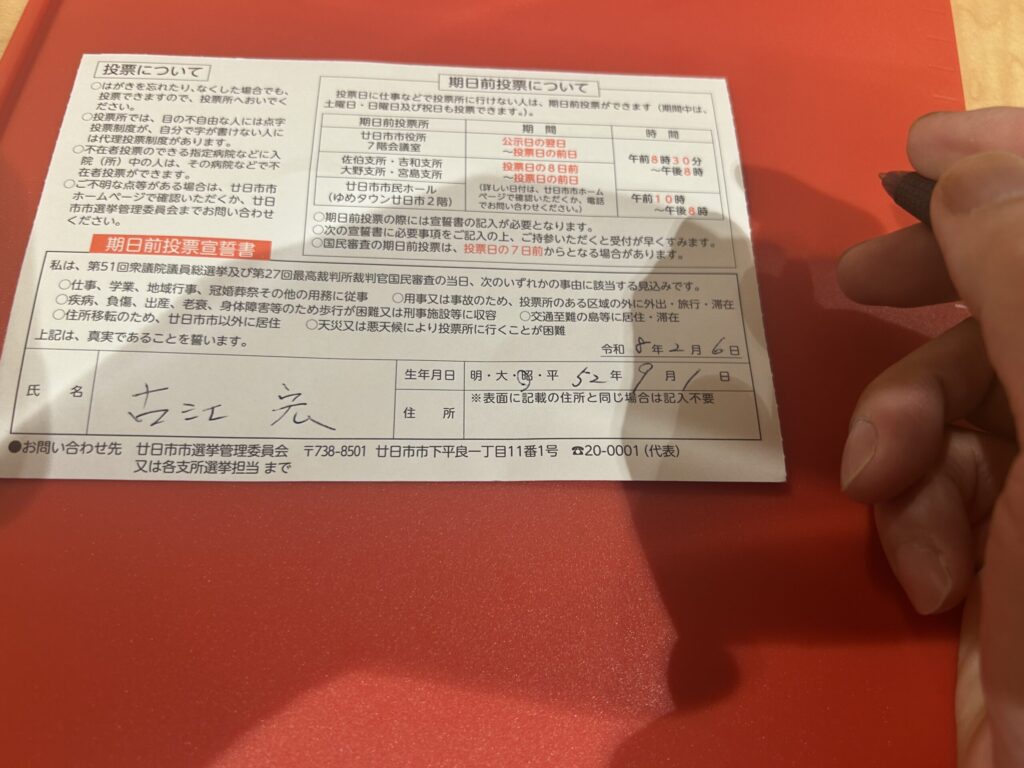 投票について
○はがきを忘れたり、なくした場合でも、
投票できますので、投票所へおいでく
ださい。
○投票所では、目の不自由な人には点字
投票制度が、自分で字が書けない人に
は代理投票制度があります。
○不在者投票のできる指定病院などに入
院(所)中の人は、その病院などで不
在者投票ができます。
○ご不明な点等がある場合は、廿日市市
ホームページで確認いただくか、廿日
市市選挙管理委員会までお問い合わせ
ください。
期日前投票について
投票日に仕事などで投票所に行けない人は、期日前投票ができます(期間中は、
土曜日・日曜日及び祝日も投票できます。)。
期日前投票所 期間 時間
廿日市市役所
7階会議室
公示日の翌日
~投票日の前日
佐伯支所・吉和支所
大野支所・宮島支所
投票日の8日前
~投票日の前日
午前8時30分
~午後8時
廿日市市民ホール
(ゆめタウン廿日市2階)
(詳しい日付は、廿日市市ホーム
ページで確認いただくか、電話
でお問い合わせください。)
午前10時
~午後8時
○期日前投票の際には宣誓書の記入が必要となります。
○次の宣誓書に必要事項をご記入の上、ご持参いただくと受付が早くすみます。
○国民審査の期日前投票は、投票日の7日前からとなる場合があります。
期日前投票宣誓書
私は、第51回衆議院議員総選挙及び第27回最高裁判所裁判官国民審査の当日、次のいずれかの事由に該当する見込みです。
○仕事、学業、地域行事、冠婚葬祭その他の用務に従事 ○用事又は事故のため、投票所のある区域の外に外出・旅行・滞在
○疾病、負傷、出産、老衰、身体障害等のため歩行が困難又は刑事施設等に収容 ○交通至難の島等に居住・滞在
○住所移転のため、廿日市市以外に居住 ○天災又は悪天候により投票所に行くことが困難
上記は、真実であることを誓います。
令和 8年2月6日
氏名 古江 宏
生年月日 明・大・昭・平 52年9月1日
住所 ※表面に記載の住所と同じ場合は記入不要
●お問い合わせ先 廿日市市選挙管理委員会 〒738-8501 廿日市市下平良一丁目11番1号 ☎20-0001(代表)
又は各支所選挙担当 まで